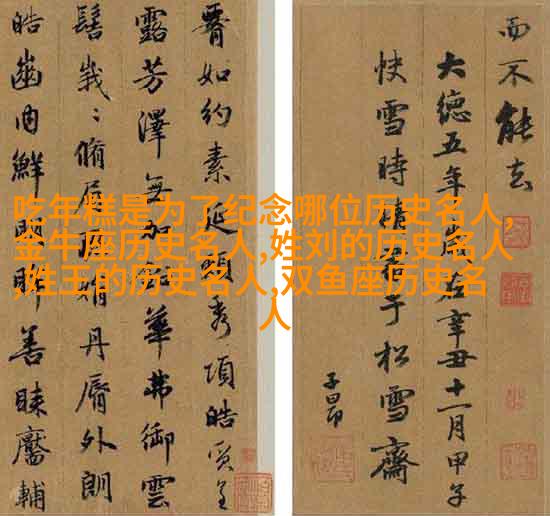 吃年糕是为了纪念哪位历史名人,
金牛座历史名人,姓刘的历史名人
,姓王的历史名人,双鱼座历史名
人
而不能去
大德五年歲在辛丑十一月甲子
快雪時晴書于松雪齋
子昂
如約素延頸秀項皓質呈
露芳澤無加鉛華弗御雲
髻峩〻脩眉聯娟丹脣外朗
皓齒内鮮明眸善睞靨輔